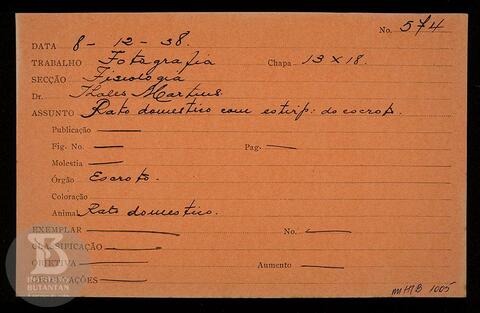 No. 574
DATA 8 - 12 - 38.
TRABALHO Fotografia Chapa 13 x 18.
SECÇÃO Fisiologia
Dr. Thales Martins.
ASSUNTO Rato domestico com estirp: do escrot.
Publicação
Fig. No. Pag.
Molestia
Órgão Escroto.
Coloração
Animal Rato domestico.
EXEMPLAR No.
CLASSIFICAÇÃO
OBJETIVA Aumento
OBSERVAÇÕES
BUTANTAN
mHIB 1005